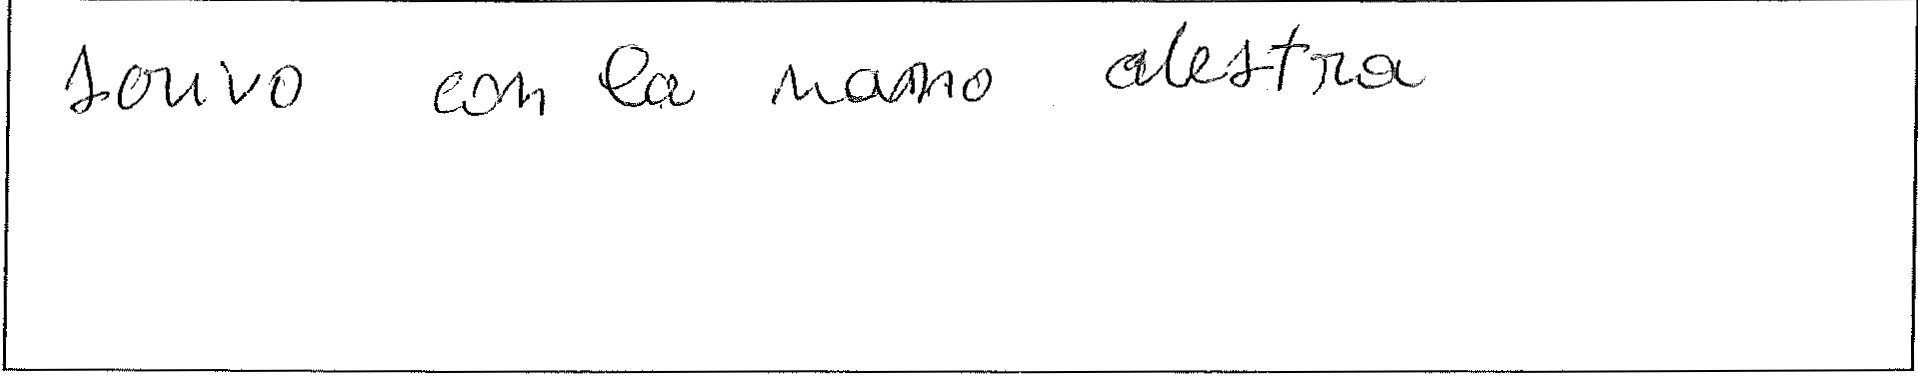 scrivo con la mano destra